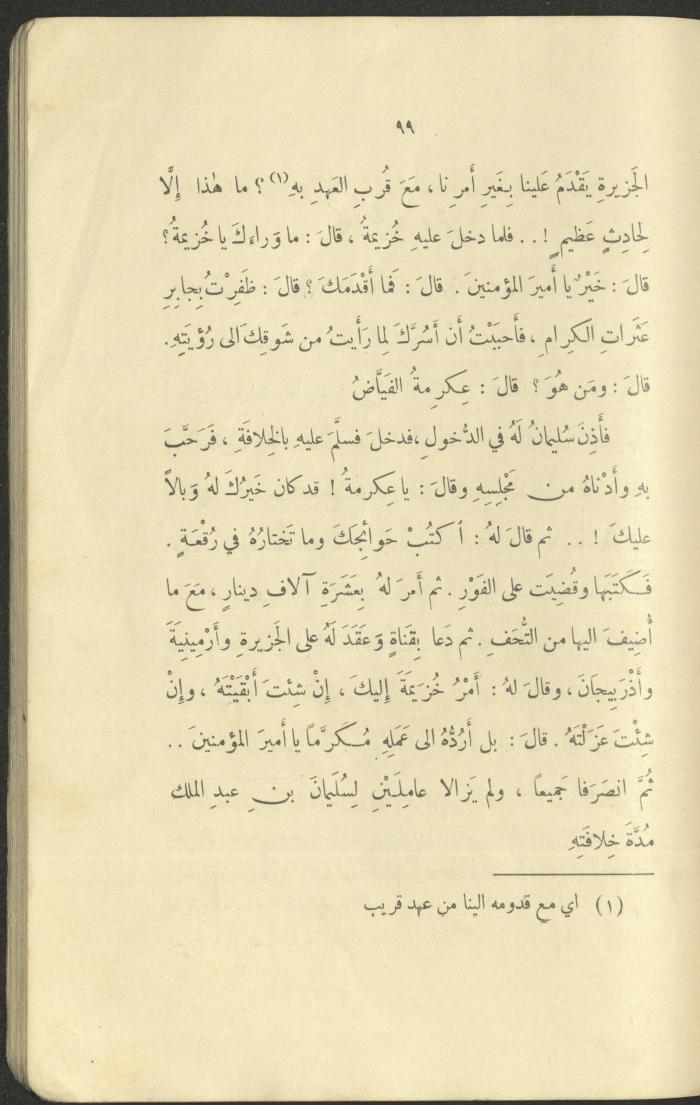 ٩٩
الجَزيرةِ يَقْدَمُ عَلينا بِغَيرِ أَمرِنا ، مَعَ قُربِ العَهدِ بهِ(١) ؟ ما هٰذا إِلَّا
لِحادِثٍ عَظيمٍ ! . . فلما دخلَ عليهِ خُزيمةُ ، قالَ : ما وَراءَكَ يا خُزيمةُ ؟
قالَ : خَيْرٌ يا أَميرَ المؤمنينَ . قالَ : فَما أَقْدَمَكَ ؟ قالَ : ظَفِرْتُ بِجابِرِ
عَثَراتِ الكرامِ ، فأَحبَبْتُ أَن أَسُرَّكَ لِما رَأَيتُ من شَوقِكَ الى رُؤيَتِهِ .
قالَ : ومَن هُوَ ؟ قالَ : عِكرِمةُ الفَيَّاضُ
فأَذِنَ سُليمانُ لَهُ في الدُّخولِ ، فدخلَ فسلَّمَ عليهِ بالخِلافَةِ ، فَرَحَّبَ
بهِ وأَدْناهُ من مَجْلِسِهِ وقالَ : يا عِكرمةُ ! قد كان خَيرُكَ لهُ وَبالاً
عليكَ ! . . ثم قالَ لهُ : أكتُبْ حَوائِجَكَ وما تَختارُهُ في رُقْعَةٍ .
فَكَتَبَها وقُضِيَت على الفَوْرِ . ثم أَمرَ لهُ بِعَشَرَةِ آلافِ دينارٍ ، مَعَ ما
أُضِيفَ اليها من التُّحَفِ . ثم دَعا بِقَناةٍ وَعَقَدَ لَهُ على الجَزيرةِ وأَرْمِينِيَةَ
وأَذْرَبِيجانَ ، وقالَ لهُ : أَمْرُ خُزَيمَةَ إِليكَ ، إِنْ شِئتَ أَبْقَيْتَهُ ، وإِنْ
شِئْتَ عَزَلْتَهُ . قالَ : بل أَرُدُّهُ الى عَمَلِهِ مُكَرَّماً يا أَميرَ المؤمنينَ . .
ثُمَّ انصَرَفا جَميعاً ، ولم يَزالا عامِلَيْنِ لِسُلَيمانَ بنِ عبدِ الملك
مُدَّةَ خِلافَتِهِ
(١) اي مع قدومه الينا من عهد قريب